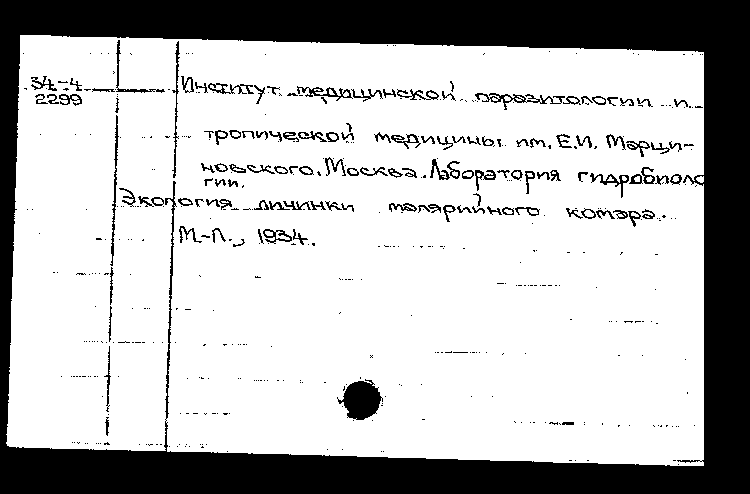 34-4
2299
Институт медицинской паразитологии и
тропической медицины им. Е.И. Марци-
новского. Москва. Лаборатория гидробиоло
гии.
Экология личинки малярийного комара.
М.-Л., 1934.